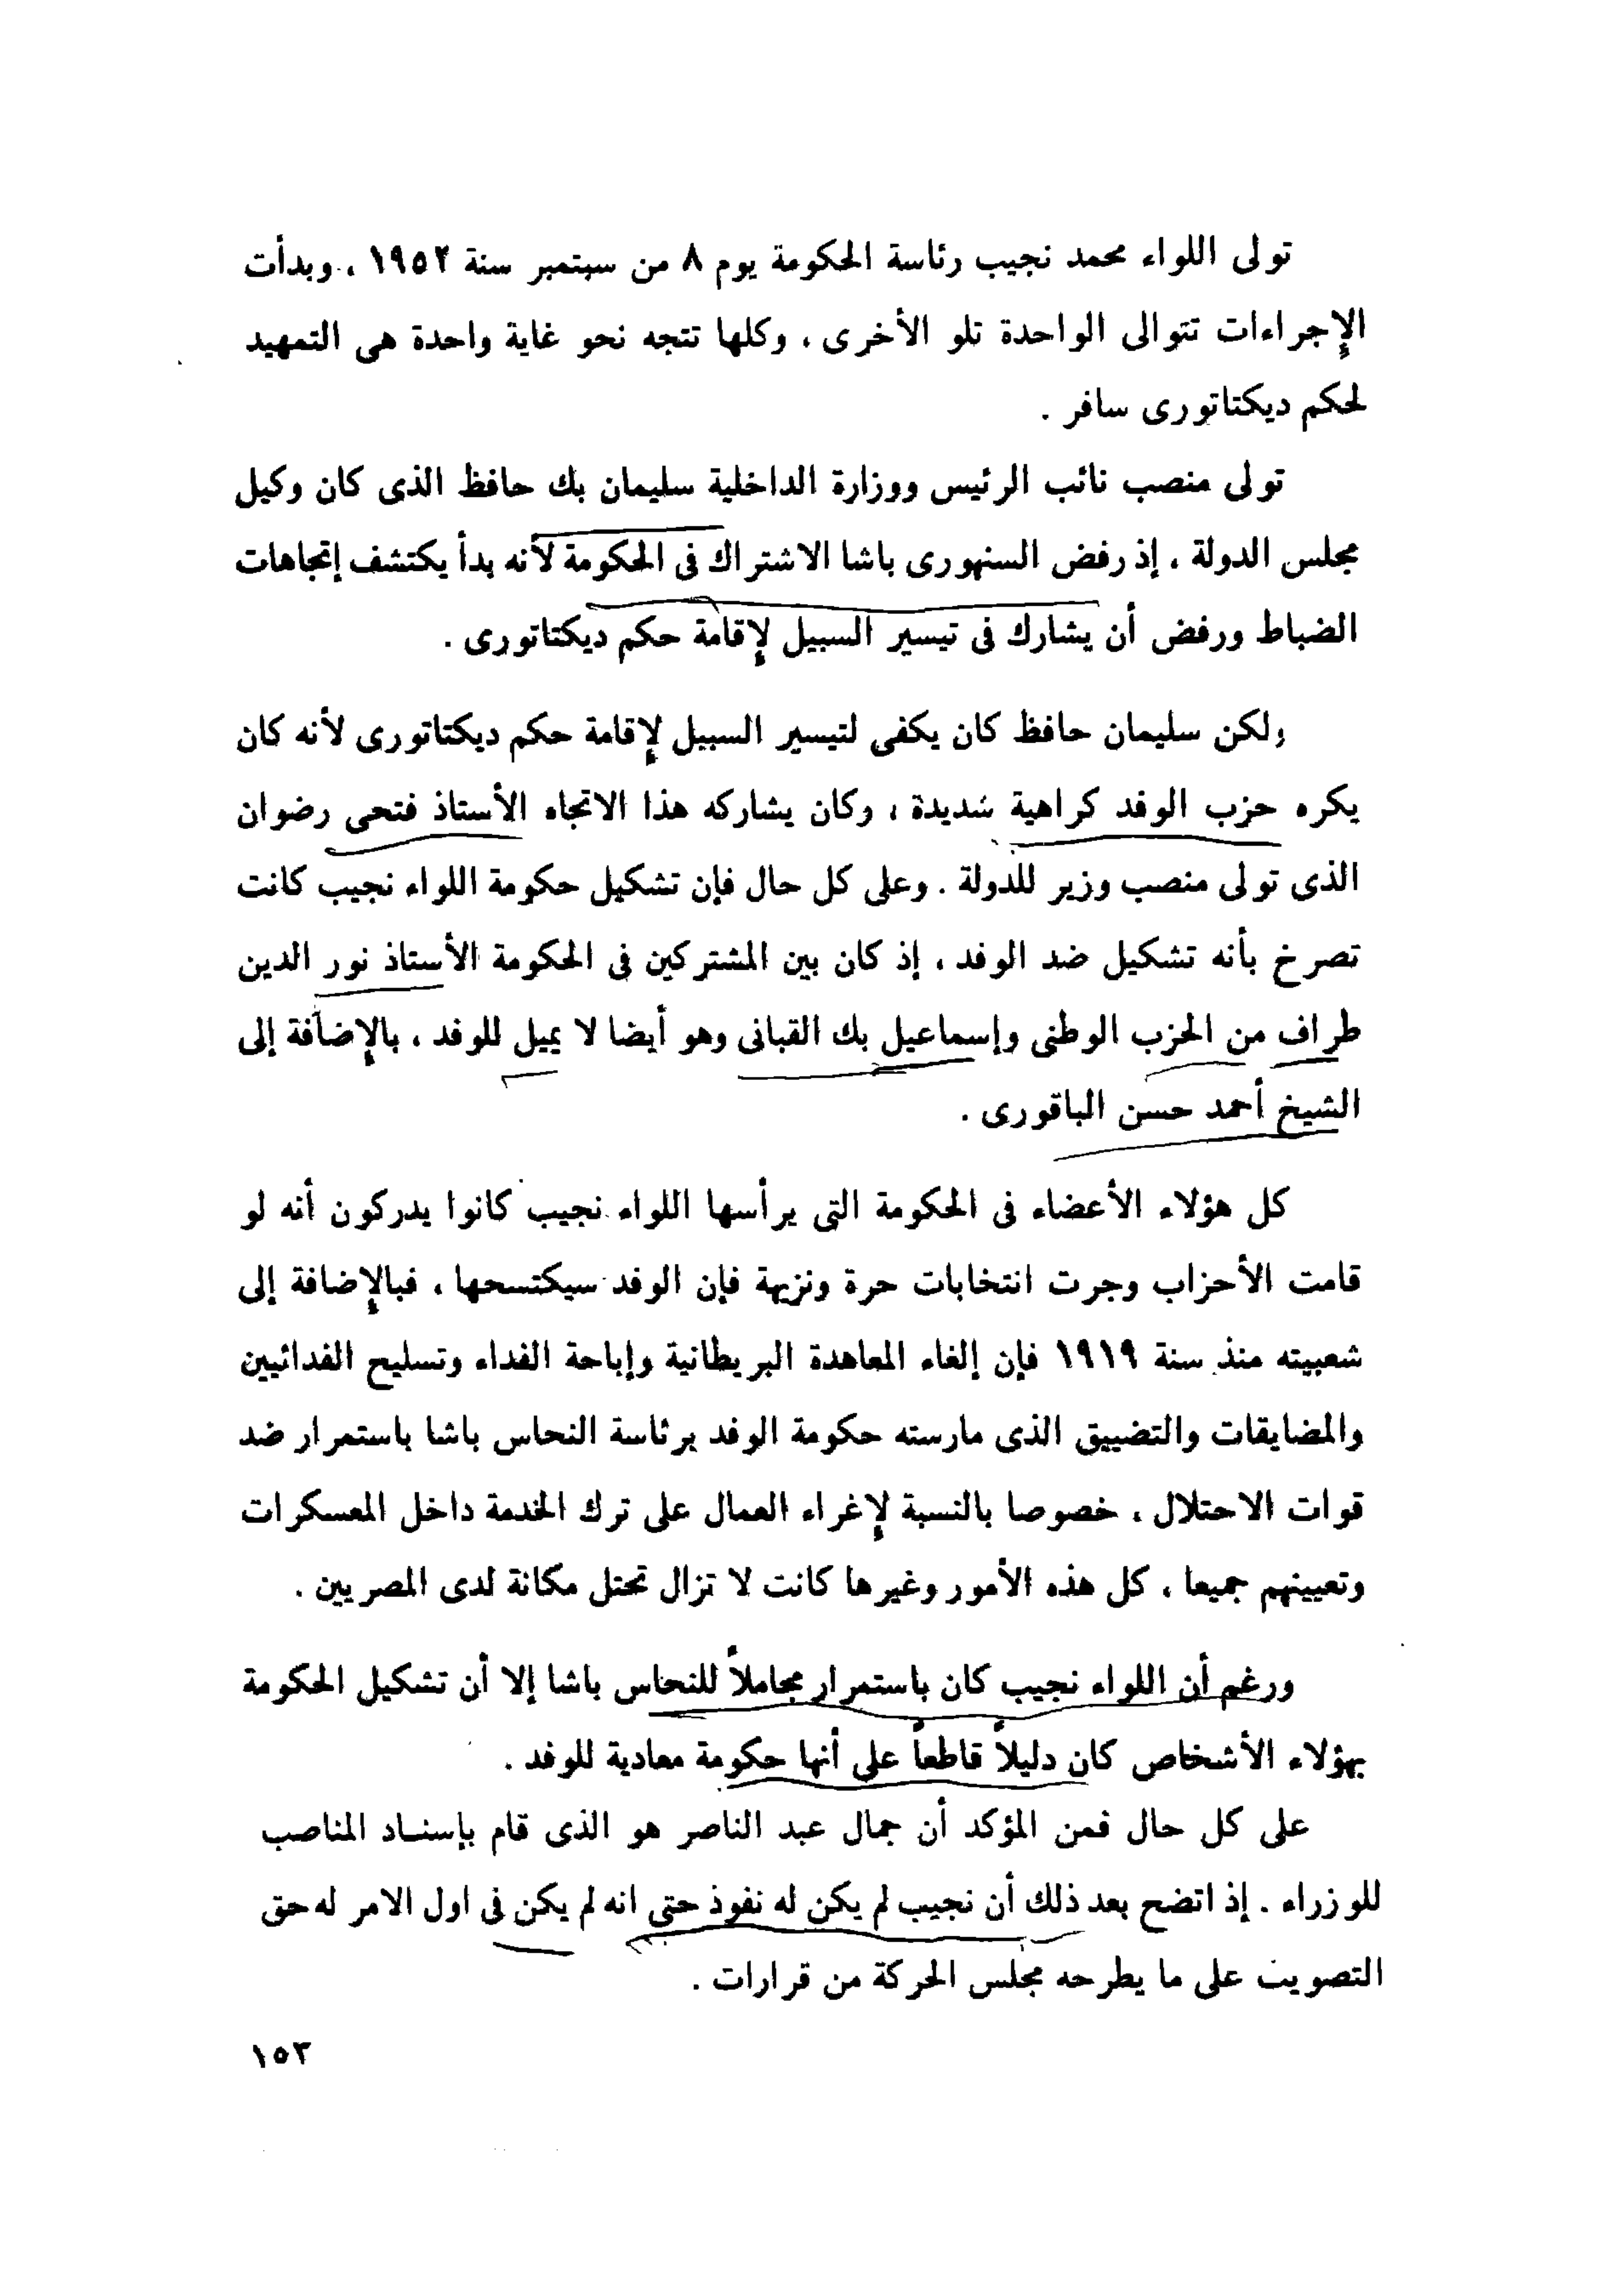 تولى اللواء محمد نجيب رئاسة الحكومة يوم ٨ من سبتمبر سنة ١٩٥٢ ، وبدأت
الإجراءات تتوالى الواحدة تلو الأخرى ، وكلها تتجه نحو غاية واحدة هى التمهيد
لحكم ديكتاتورى سافر .
تولى منصب نائب الرئيس ووزارة الداخلية سليمان بك حافظ الذى كان وكيل
مجلس الدولة ، إذ رفض السنهورى باشا الاشتراك فى الحكومة لأنه بدأ يكتشف إتجاهات
الضباط ورفض أن يشارك فى تيسير السبيل لإقامة حكم ديكتاتورى .
ولكن سليمان حافظ كان يكفى لتيسير السبيل لإقامة حكم ديكتاتورى لأنه كان
يكره حزب الوفد كراهية شديدة ، وكان يشاركه هذا الاتجاه الأستاذ فتحى رضوان
الذى تولى منصب وزير للدولة . وعلى كل حال فإن تشكيل حكومة اللواء نجيب كانت
تصرخ بأنه تشكيل ضد الوفد ، إذ كان بين المشتركين فى الحكومة الأستاذ نور الدين
طراف من الحزب الوطنى وإسماعيل بك القبانى وهو أيضا لا يميل للوفد ، بالإضافة إلى
الشيخ أحمد حسن الباقورى .
كل هؤلاء الأعضاء فى الحكومة التى يرأسها اللواء نجيب كانوا يدركون أنه لو
قامت الأحزاب وجرت انتخابات حرة ونزيهة فإن الوفد سيكتسحها ، فبالإضافة إلى
شعبيته منذ سنة ١٩١٩ فإن إلغاء المعاهدة البريطانية وإباحة الفداء وتسليح الفدائيين
والمضايقات والتضييق الذى مارسته حكومة الوفد برئاسة النحاس باشا باستمرار ضد
قوات الاحتلال ، خصوصا بالنسبة لإغراء العمال على ترك الخدمة داخل المعسكرات
وتعيينهم جميعا ، كل هذه الأمور وغيرها كانت لا تزال تحتل مكانة لدى المصريين .
ورغم أن اللواء نجيب كان باستمرار مجاملاً للنحاس باشا إلا أن تشكيل الحكومة
بهؤلاء الأشخاص كان دليلاً قاطعاً على أنها حكومة معادية للوفد .
على كل حال فمن المؤكد أن جمال عبد الناصر هو الذى قام بإسنـاد المناصب
للوزراء . إذ اتضح بعد ذلك أن نجيب لم يكن له نفوذ حتى انه لم يكن فى اول الامر له حق
التصويت على ما يطرحه مجلس الحركة من قرارات .
١٥٣